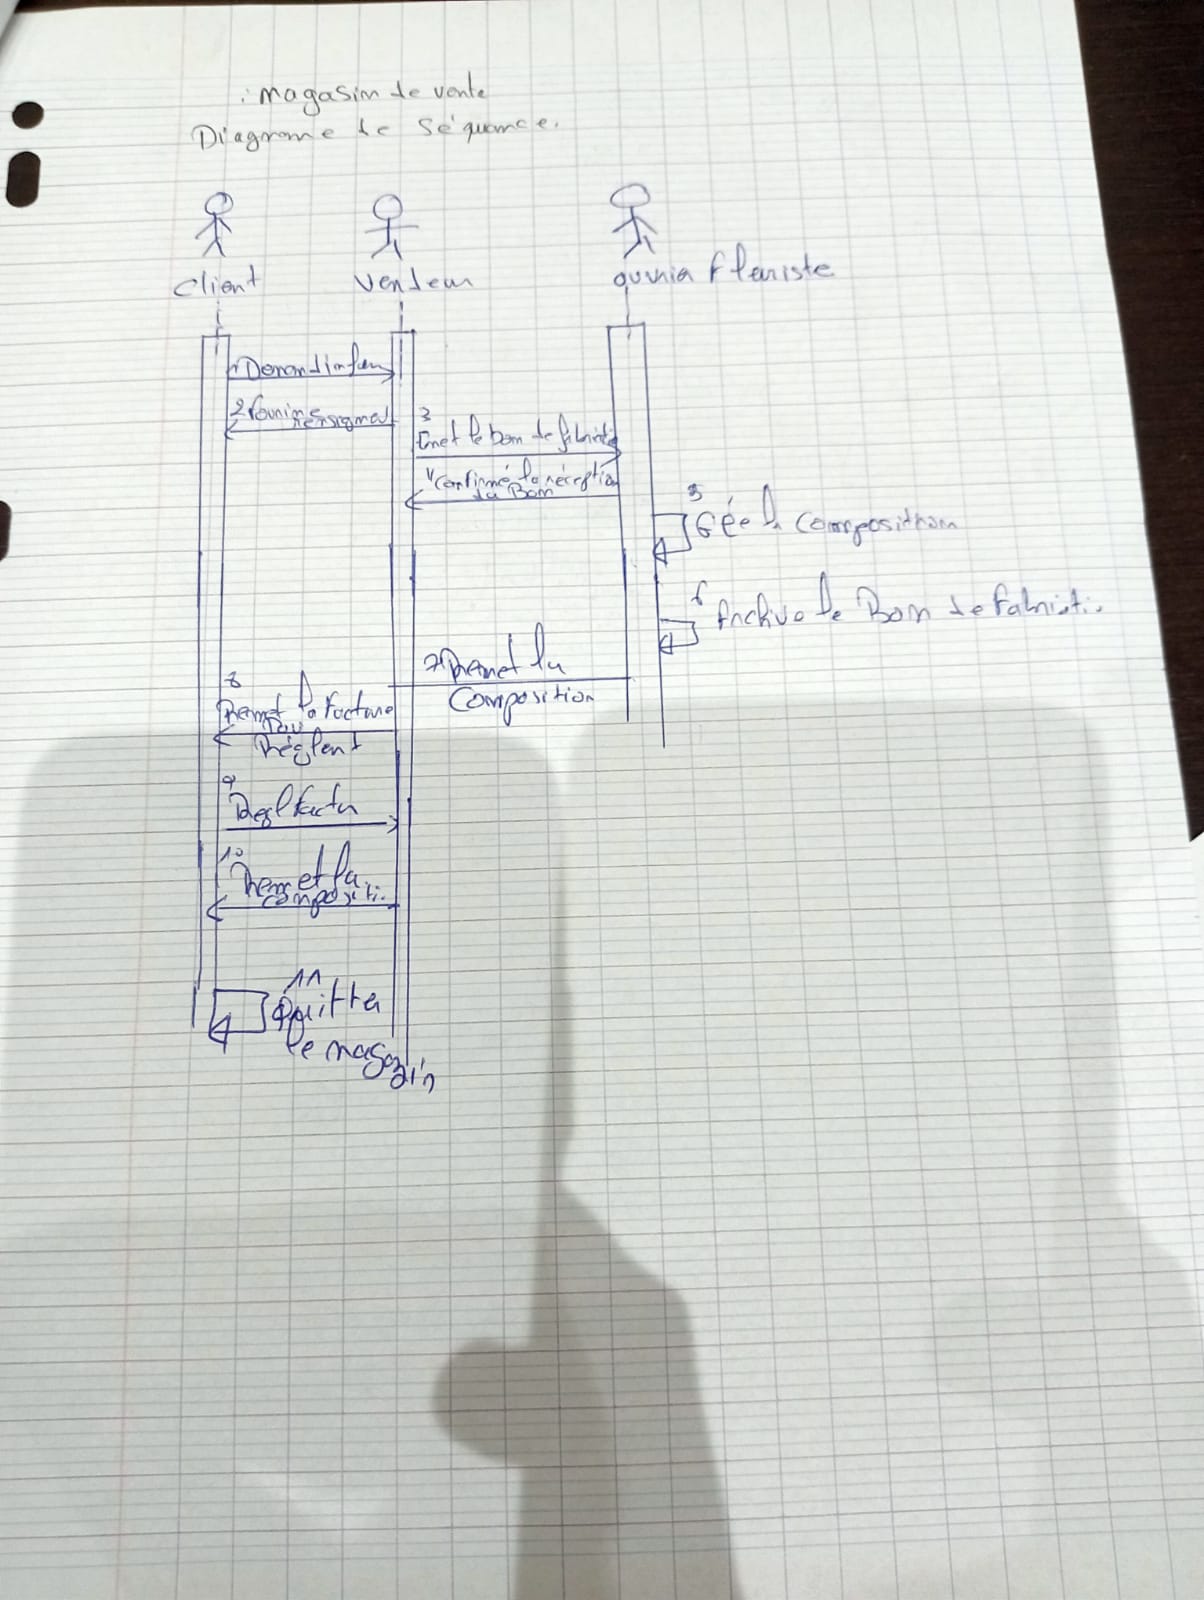 : magasin de vente
Diagrame de séquance.
client
vendeur
ouvria fleuriste
1 Demand infor
2 Fournir
rensignet
3
Emet le bon de fabricati
4 Confirmé la réception
du Bon
5
Gée la composition
6
Archive le Bon de Fabricati.
7 Remet la
Composition
8
Remet la Facture
pou
Règlent
9
Regl factu
10
Remet la
compositi.
11
Quitter
le magazin